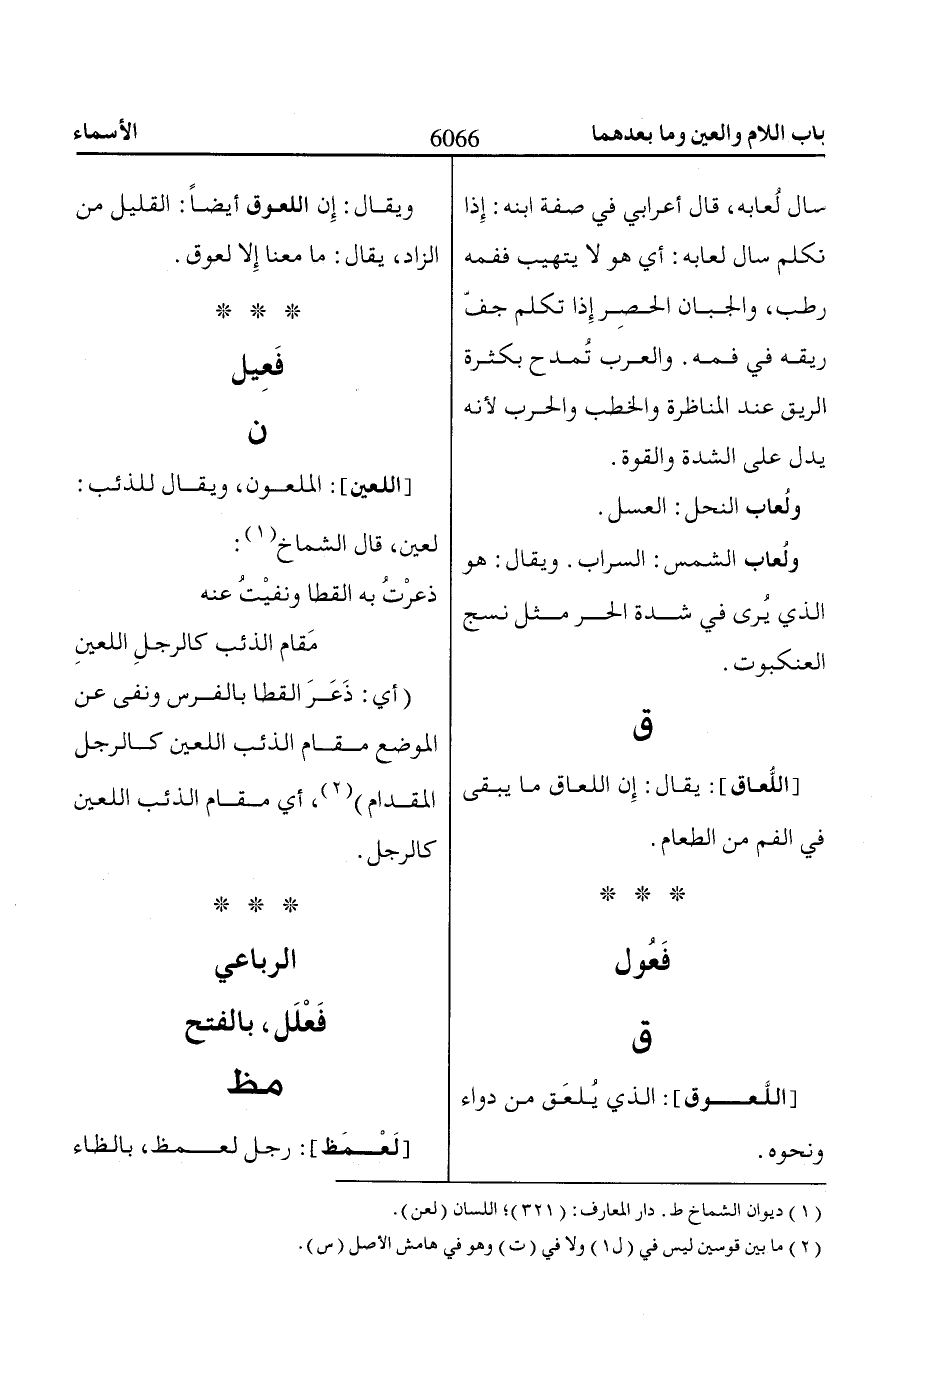 باب اللام والعين وما بعدهما
6066
الأسماء
سال لُعابه، قال أعرابي في صفة ابنه: إِذا
تكلم سال لعابه: أي هو لا يتهيب ففمه
رطب، والجبان الحصِر إِذا تكلم جفّ
ريقه في فمه. والعرب تُمدح بكثرة
الريق عند المناظرة والخطب والحرب لأنه
يدل على الشدة والقوة.
ولُعاب النحل: العسل.
ولُعاب الشمس: السراب. ويقال: هو
الذي يُرى في شدة الحر مثل نسج
العنكبوت.
ق
[اللُّعاق]: يقال: إِن اللعاق ما يبقى
في الفم من الطعام.
* * *
فَعُول
ق
[اللَّعوق]: الذي يُلعَق من دواء
ونحوه.
ويقال: إِن اللعوق أيضاً: القليل من
الزاد، يقال: ما معنا إِلا لعوق.
* * *
فَعِيل
ن
[اللعين]: الملعون، ويقال للذئب:
لعين، قال الشماخ(١):
ذعرْتُ به القطا ونفيْتُ عنه
مَقام الذئب كالرجلِ اللعينِ
(أي: ذَعَرَ القطا بالفرس ونفى عن
الموضع مقام الذئب اللعين كالرجل
المقدام)(٢)، أي مقام الذئب اللعين
كالرجل.
* * *
الرباعي
فَعْلَل، بالفتح
مظ
[لَعْمَظ]: رجل لعمظ، بالظاء
(١) ديوان الشماخ ط. دار المعارف: (٣٢١)؛ اللسان (لعن).
(٢) ما بين قوسين ليس في (ل١) ولا في (ت) وهو في هامش الأصل (س).